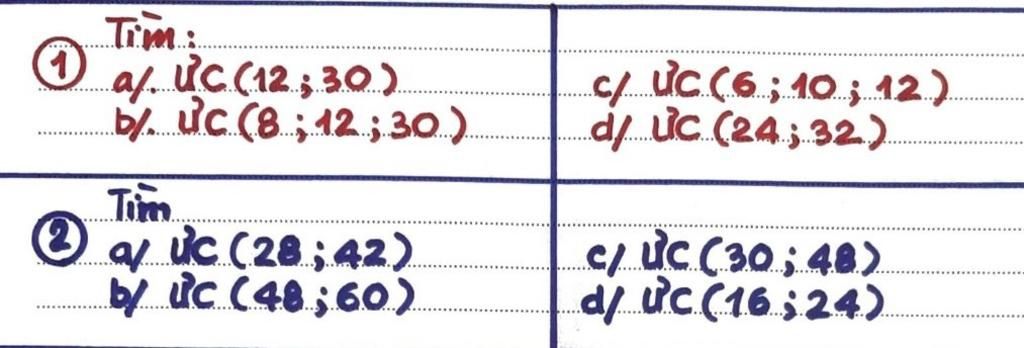 Tìm:
① a/. ƯC (12 ; 30)
b/. ƯC (8 ; 12 ; 30)
c/ ƯC (6 ; 10 ; 12)
d/ ƯC (24 ; 32)
Tìm
② a/ ƯC (28 ; 42)
b/ ƯC (48 ; 60)
c/ ƯC (30 ; 48)
d/ ƯC (16 ; 24)